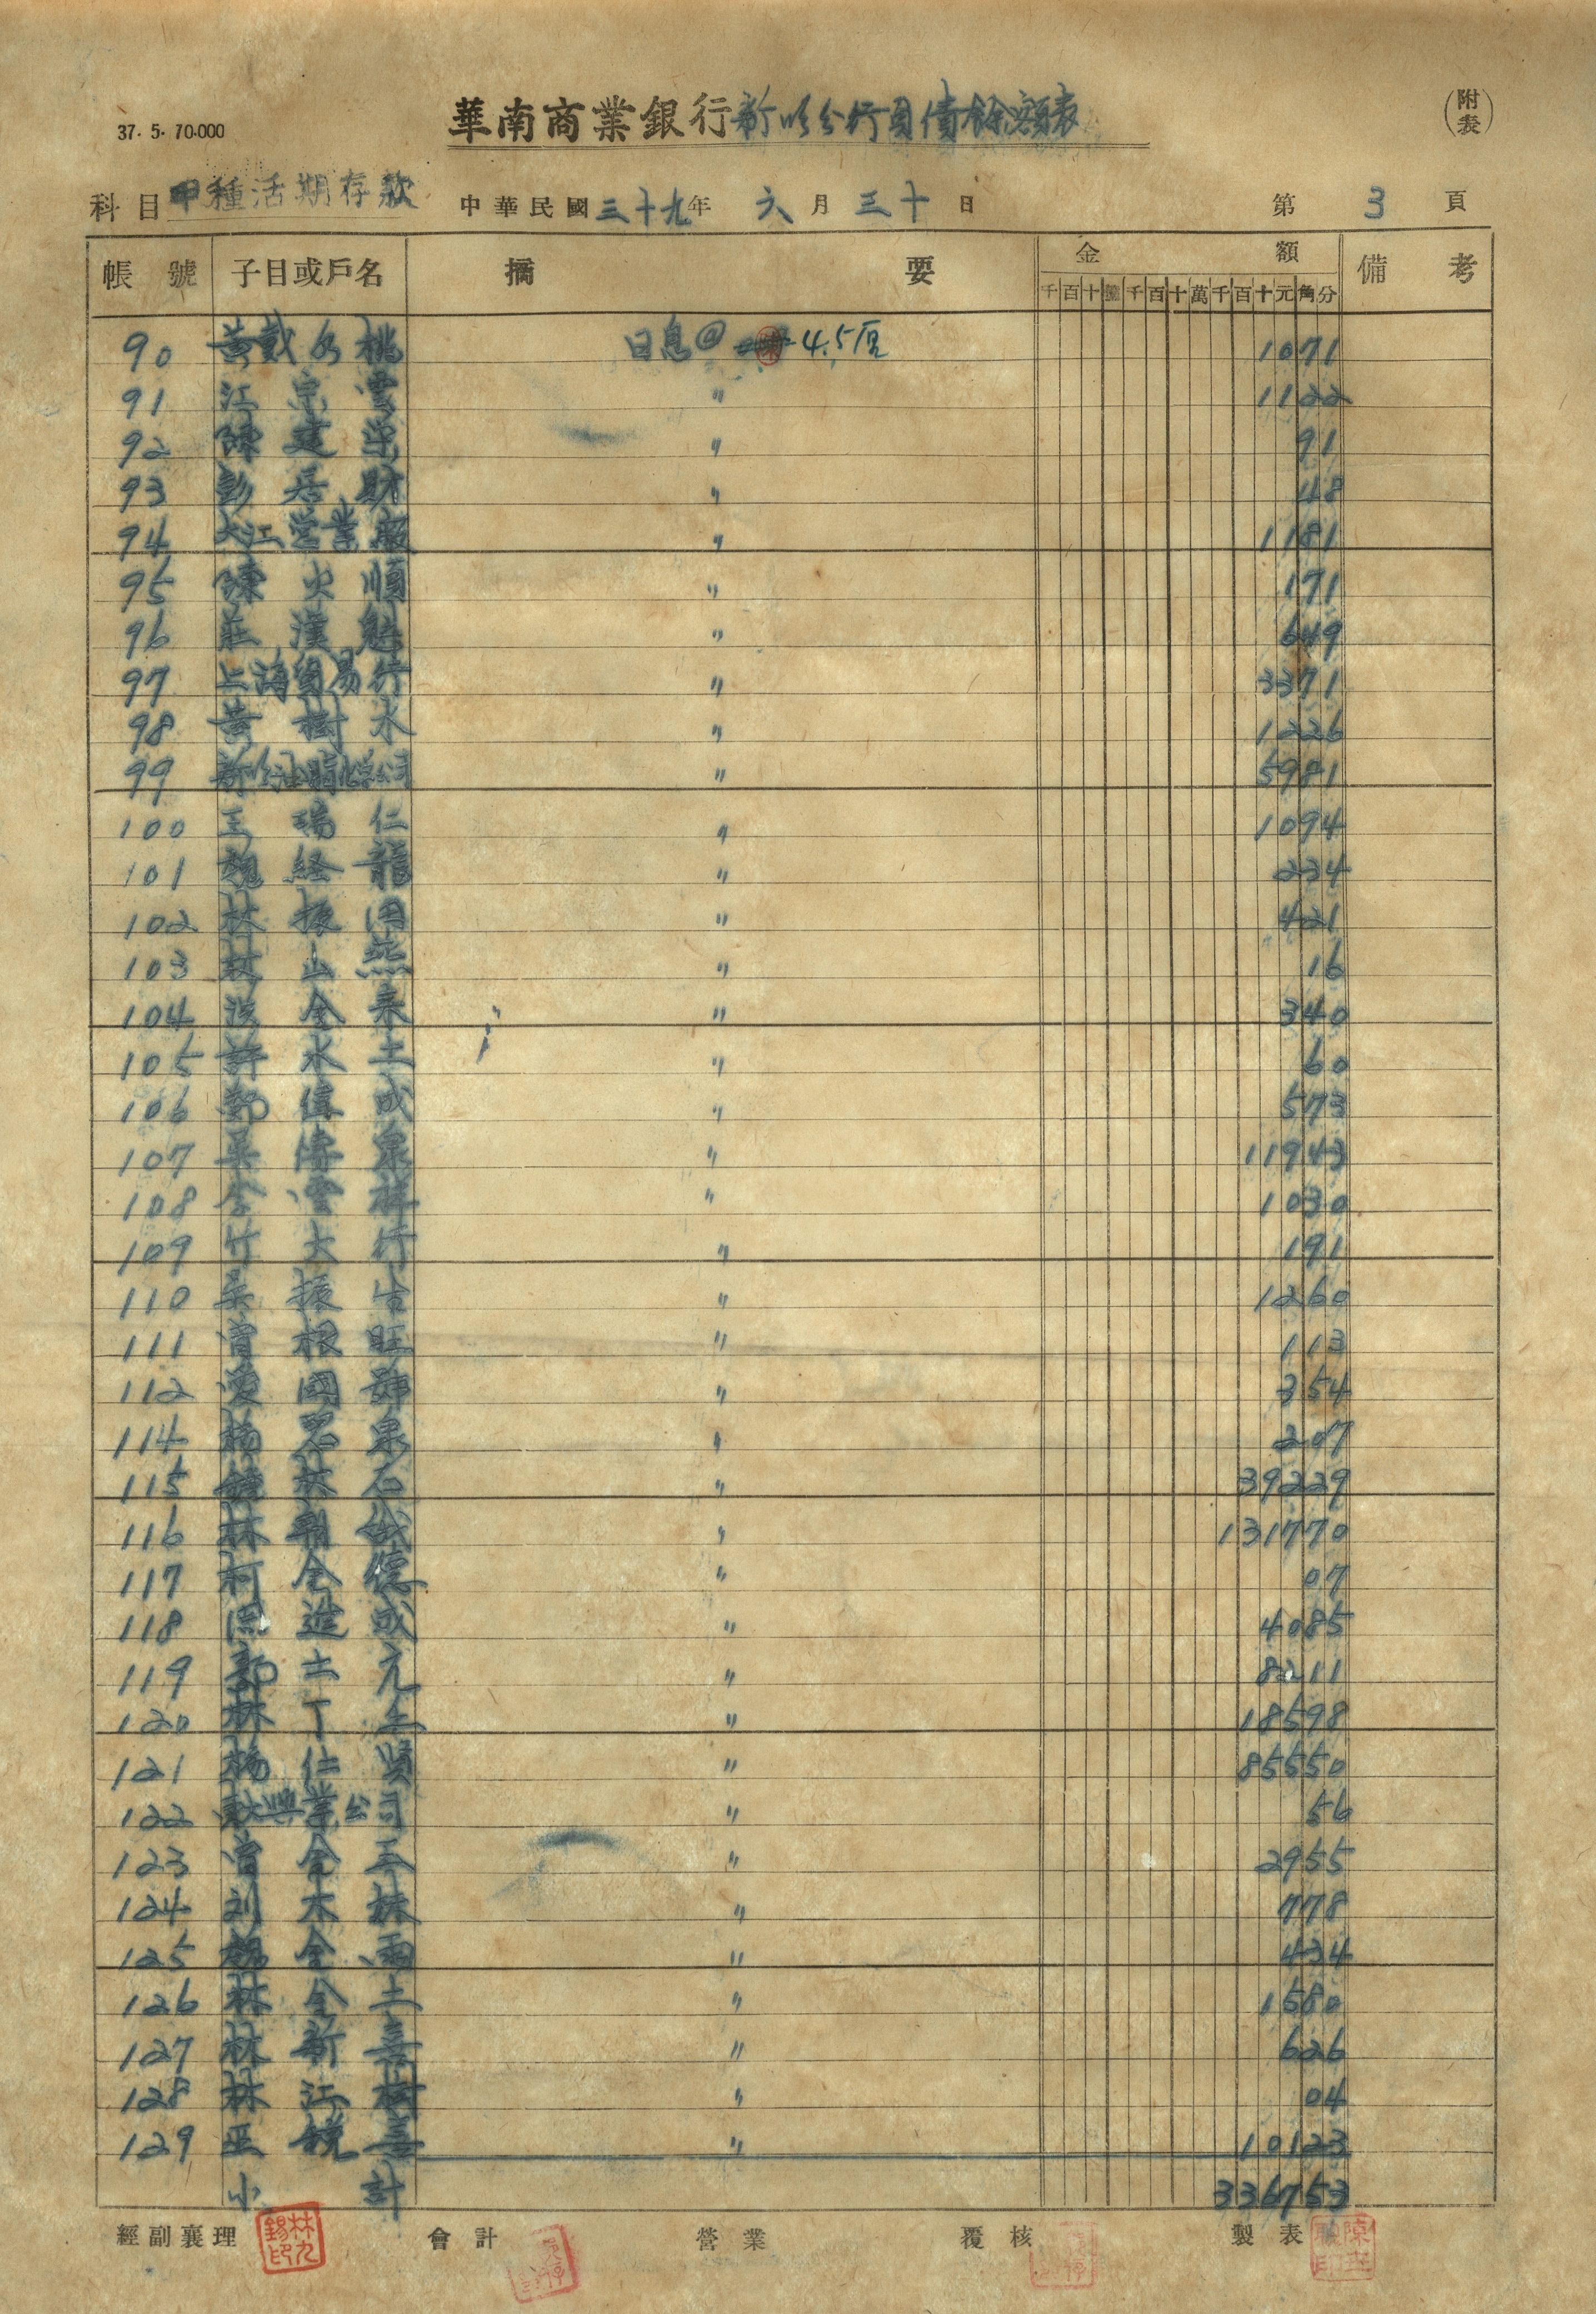 37. 5. 70.000
華南商業銀行新竹分行負債餘額表
(附表)
科目 甲種活期存款 中華民國三十九年 六月三十日 第 3 頁
帳號 子目或戶名 摘要 金額 備考
千百十億千百十萬千百十元角分
90 黃戴 桃 日息@ 4.5厘 1071
91 江宗雲 〃 1122
92 陳建 〃 91
93 彭居財 〃 48
94 大江営業 〃 1181
95 陳火順 〃 171
96 莊漢魁 〃 649
97 上海貿易行 〃 3371
98 黃樹水 〃 1226
99 新竹 公司 〃 5981
100 王瑞仁 〃 1094
101 魏経龍 〃 234
102 林振 〃 421
103 林山 〃 16
104 金 〃 340
105 許水土 〃 60
106 鄭信成 〃 573
107 吳傳泉 〃 11943
108 李雲祥 〃 1030
109 竹大行 〃 191
110 吳振吉 〃 1260
111 曾根旺 〃 113
112 愛國號 〃 354
114 楊 泉 〃 207
115 鍾林石 〃 39229
116 林朝 〃 131770
117 柯金德 〃 07
118 進成 〃 4085
119 郭土元 〃 8211
120 林丁 〃 18598
121 楊仁賢 〃 85550
122 興業公司 〃 56
123 曾金 〃 2955
124 刘木 〃 778
125 金雨 〃 434
126 林金土 〃 1580
127 林新喜 〃 626
128 林江樹 〃 04
129 巫 喜 〃 10123
小計 336753
經副襄理 林九錫印 會計 營業 覆核 製表